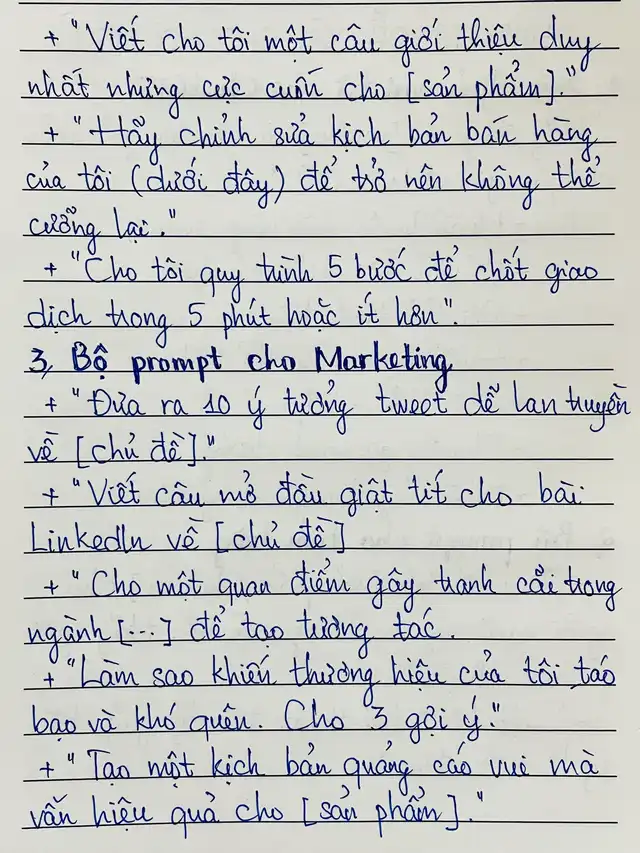 + "Viết cho tôi một câu giới thiệu duy
nhất nhưng cực cuốn cho [sản phẩm]."
+ "Hãy chỉnh sửa kịch bản bán hàng
của tôi (dưới đây) để trở nên không thể
cưỡng lại."
+ "Cho tôi quy trình 5 bước để chốt giao
dịch trong 5 phút hoặc ít hơn".
3, Bộ prompt cho Marketing
+ "Đưa ra 10 ý tưởng tweet dễ lan truyền
về [chủ đề]."
+ "Viết câu mở đầu giật tít cho bài
LinkedIn về [chủ đề]
+ "Cho một quan điểm gây tranh cãi trong
ngành [...] để tạo tương tác.
+ "Làm sao khiến thương hiệu của tôi táo
bạo và khó quên. Cho 3 gợi ý."
+ "Tạo một kịch bản quảng cáo vui mà
vẫn hiệu quả cho [sản phẩm]."